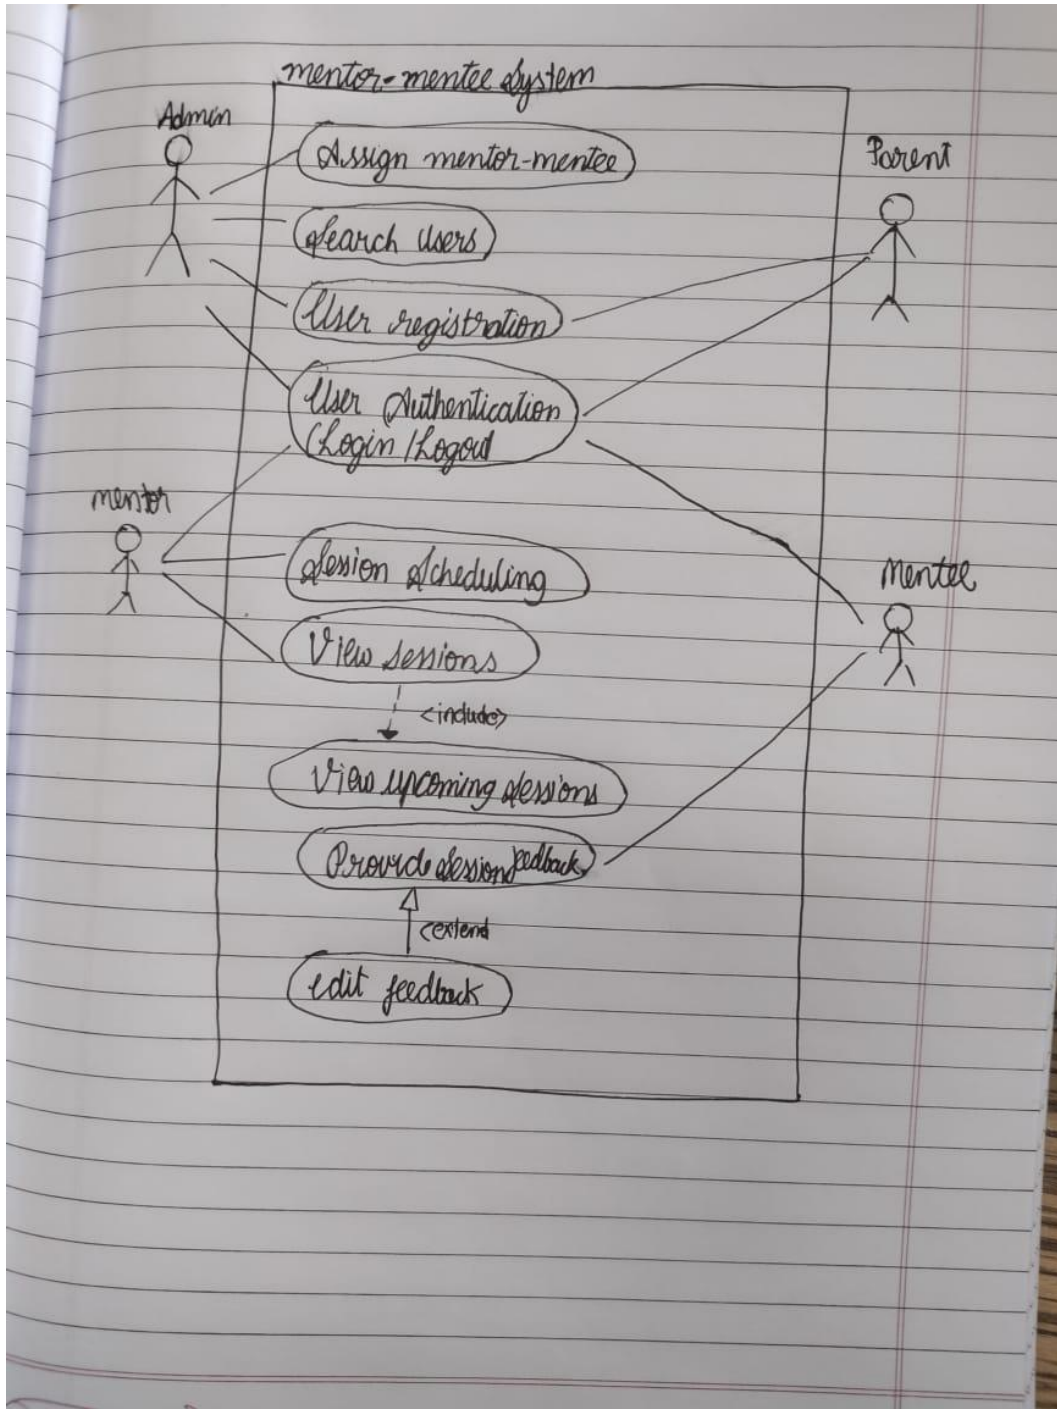 mentor-mentee System
Admin
Assign mentor-mentee
Parent
Search Users
User registration
User Authentication
(Login / Logout
mentor
Session Scheduling
Mentee
View sessions
<include>
View upcoming sessions
Provide session feedback
<extend
edit feedback